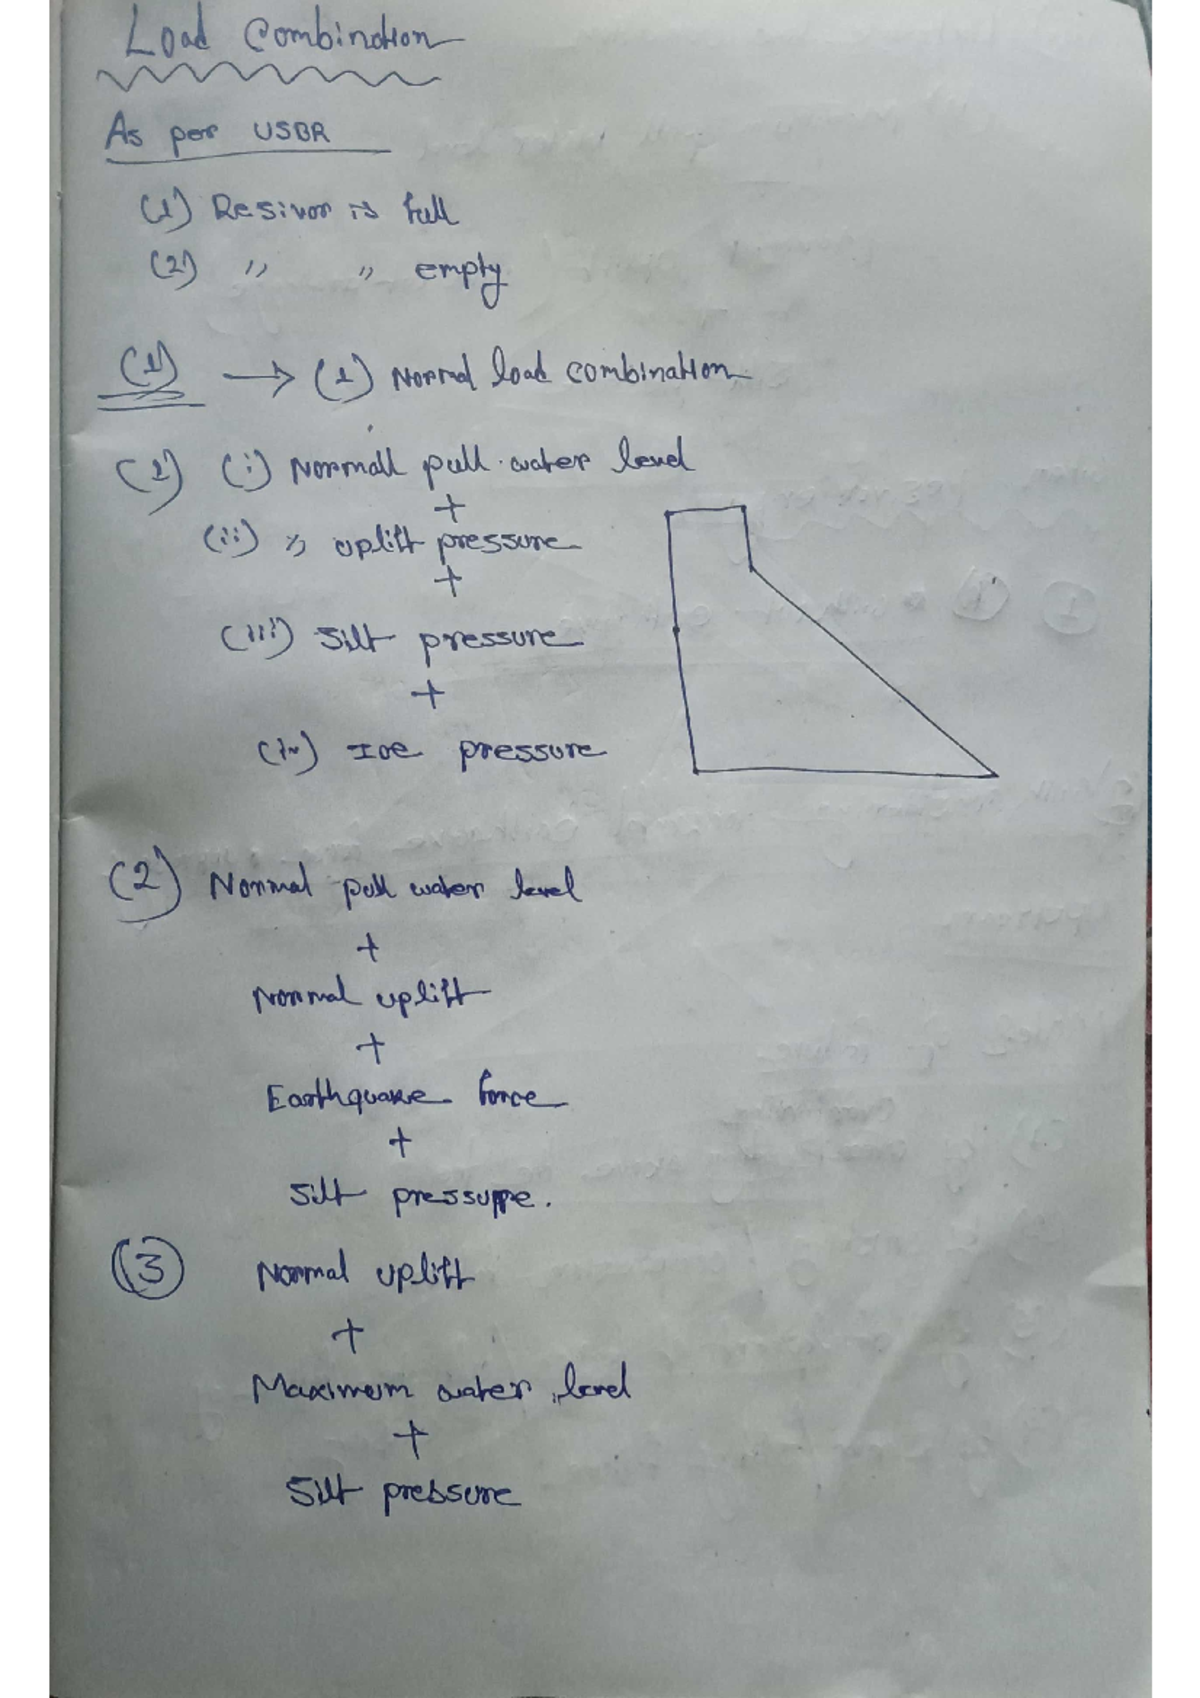 Load Combination
As per USBR
(1) Resivor is full
(2) " " empty
(1) → (1) Normal load combination
(1) (i) Normall pull water level
+
(ii) " uplift pressure
+
(iii) Silt pressure
+
(iv) Ice pressure
(2) Normal pull water level
+
Normal uplift
+
Earthquake force
+
Silt pressuppe.
(3) Normal uplift
+
Maximum water level
+
Silt pressure